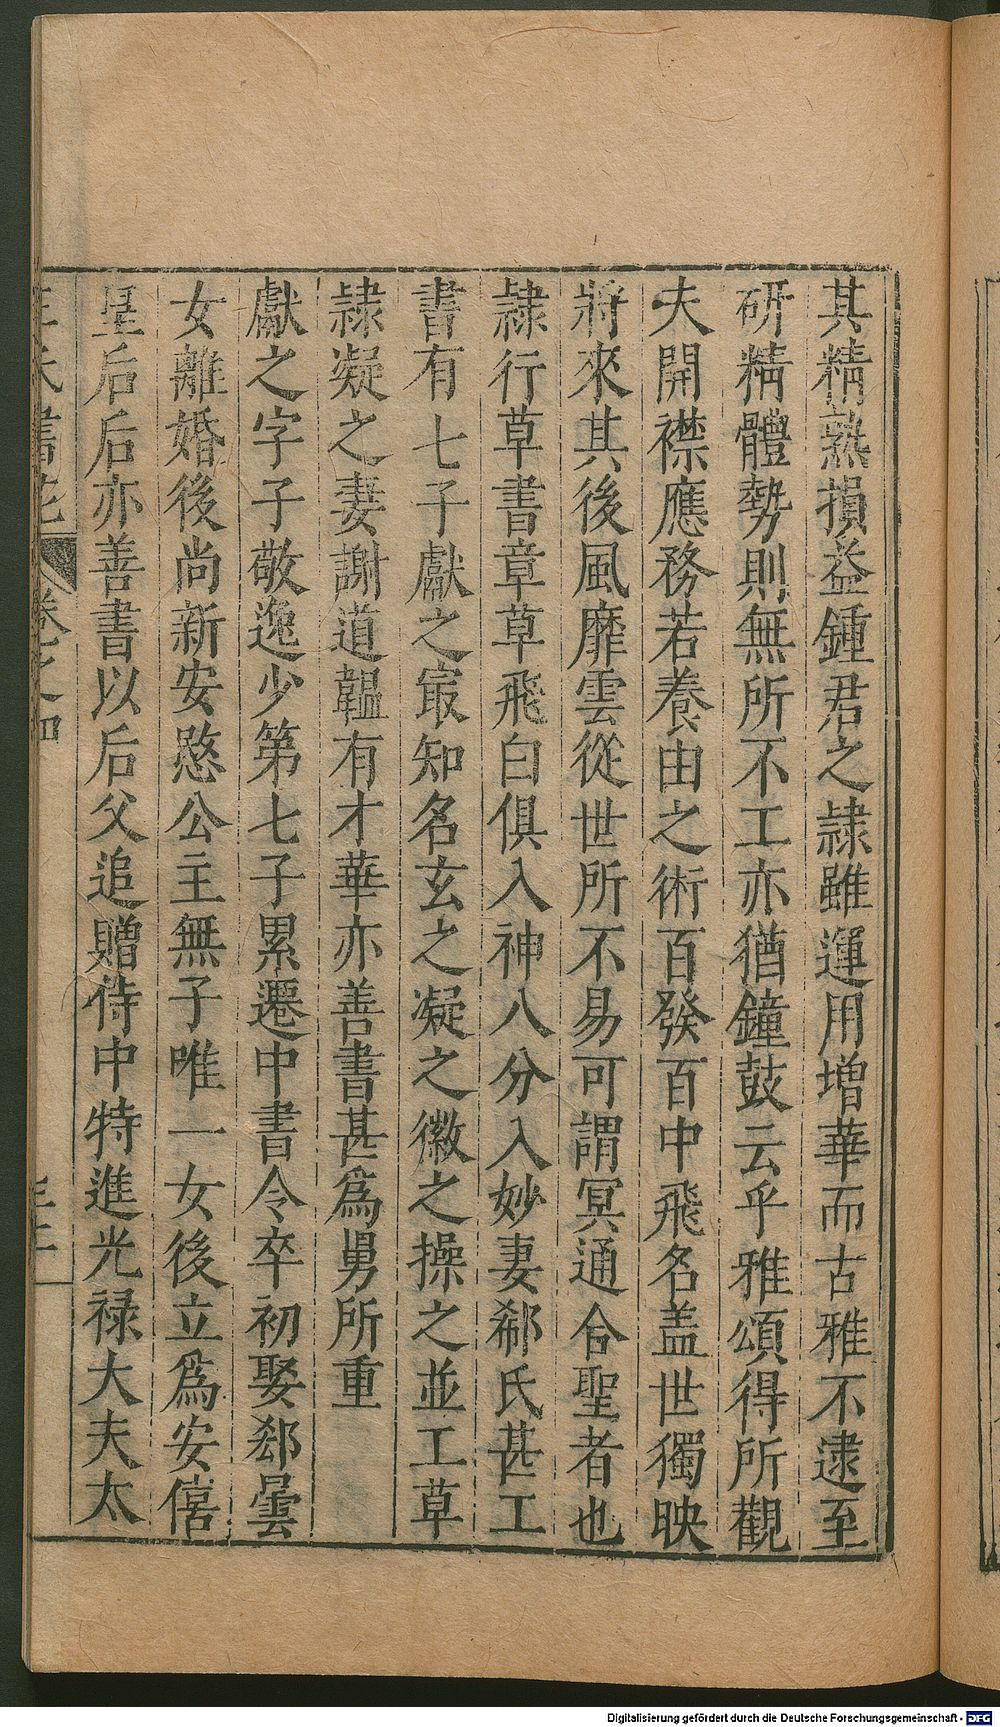 其精熟損益鍾君之隷雖運用增華而古雅不逮至
研精體勢則無所不工亦猶鐘鼓云乎雅頌得所觀
夫開襟應務若養由之術百發百中飛名盖世獨映
將來其後風靡雲從世所不易可謂冥通合聖者也
隷行草書章草飛白俱入神八分入妙妻郗氏甚工
書有七子獻之㝡知名玄之凝之徽之操之並工草
隷凝之妻謝道韞有才華亦善書甚爲舅所重
獻之字子敬逸少第七子累遷中書令卒初娶郄曇
女離婚後尚新安愍公主無子唯一女後立爲安僖
皇后后亦善書以后父追贈侍中特進光禄大夫太
王氏書苑 卷之四
Digitalisierung gefördert durch die Deutsche Forschungsgemeinschaft - DFG